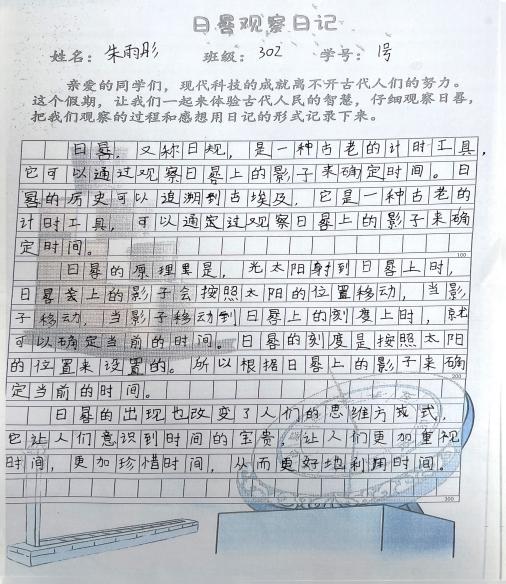 日晷观察日记
姓名：朱雨彤 班级：302 学号：1号
亲爱的同学们，现代科技的成就离不开古代人们的努力。
这个假期，让我们一起来体验古代人民的智慧，仔细观察日晷，
把我们观察的过程和感想用日记的形式记录下来。
日晷，又称日规，是一种古老的计时工具，
它可以通过观察日晷上的影子来确定时间。日
晷的历史可以追溯到古埃及，它是一种古老的
计时工具，可以通定过观察日晷上的影子来确
定时间。
100
日晷的原理是，光太阳射到日晷上时，
日晷表上的影子会按照太阳的位置移动，当影
子移动，当影子移动到日晷上的刻度上时，就
可以确定当前的时间。日晷的刻度是按照太阳
的位置来设置的。所以根据日晷上的影子来确
200
定当前的时间。
日晷的出现也改变了人们的思维方式，
它让人们意识到时间的宝贵，让人们更加重视
时间，更加珍惜时间，从而更好地利用时间。
300